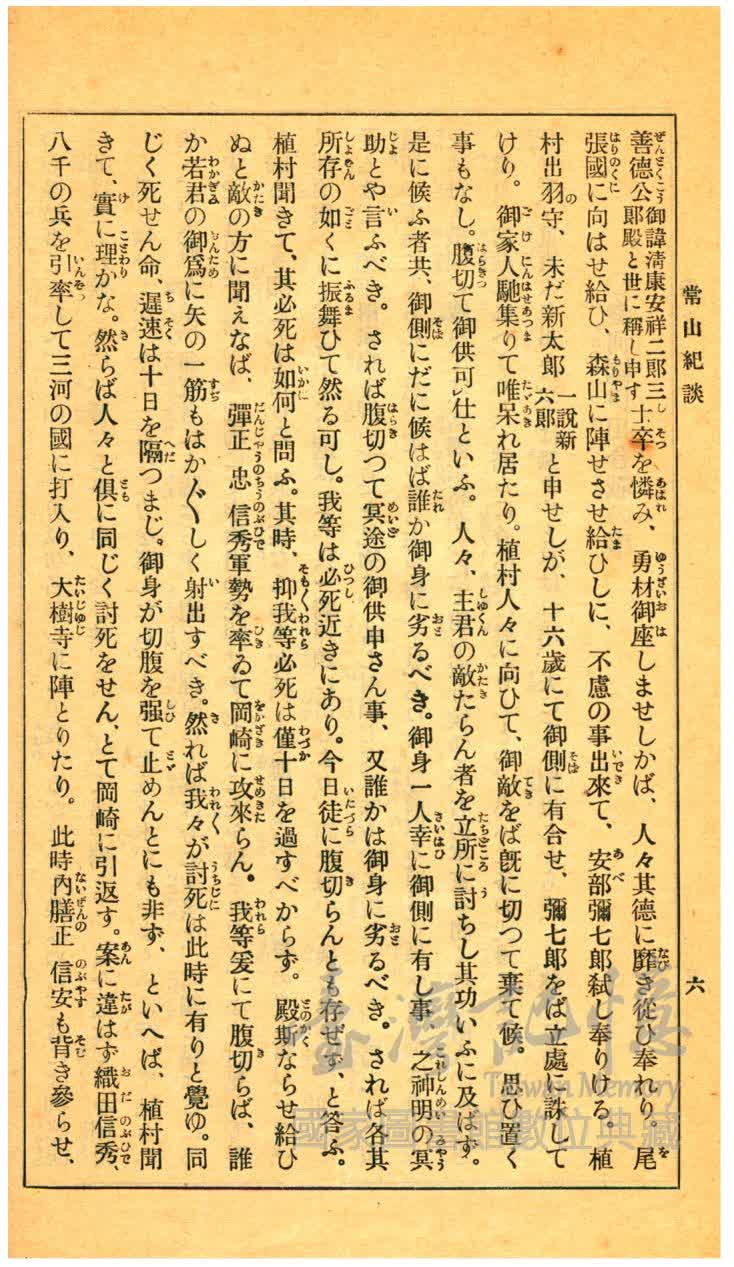 常山紀談
六
善德公御諱淸康安祥二郞三郞殿と世に稱し申す士卒を憐み、勇材御座しませしかば、人々其德に靡き從ひ奉れり。尾
張國に向はせ給ひ、森山に陣せさせ給ひしに、不慮の事出來て、安部彌七郞弑し奉りける。植
村出羽守、未だ新太郞一說新六郞と申せしが、十六歲にて御側に有合せ、彌七郞をば立處に誅して
けり。御家人馳集りて唯呆れ居たり。植村人々に向ひて、御敵をば旣に切つて棄て候。思ひ置く
事もなし。腹切て御供可仕といふ。人々、主君の敵たらん者を立所に討ちし其功いふに及ばず。
是に候ふ者共、御側にだに候はば誰か御身に劣るべき。御身一人幸に御側に有し事、之神明の冥
助とや言ふべき。されば腹切つて冥途の御供申さん事、又誰かは御身に劣るべき。されば各其
所存の如くに振舞ひて然る可し。我等は必死近きにあり。今日徒に腹切らんとも存ぜず、と答ふ。
植村聞きて、其必死は如何と問ふ。其時、抑我等必死は僅十日を過すべからず。殿斯ならせ給ひ
ぬと敵の方に聞えなば、彈正忠信秀軍勢を率ゐて岡崎に攻來らん。我等爰にて腹切らば、誰
か若君の御爲に矢の一筋もはか〲しく射出すべき。然れば我々が討死は此時に有りと覺ゆ。同
じく死せん命、遲速は十日を隔つまじ。御身が切腹を强て止めんとにも非ず、といへば、植村聞
きて、實に理かな。然らば人々と俱に同じく討死をせん、とて岡崎に引返す。案に違はず織田信秀、
八千の兵を引率して三河の國に打入り、大樹寺に陣とりたり。此時內膳正信安も背き參らせ、
臺灣記憶
Taiwan Memory
國家圖書館數位典藏